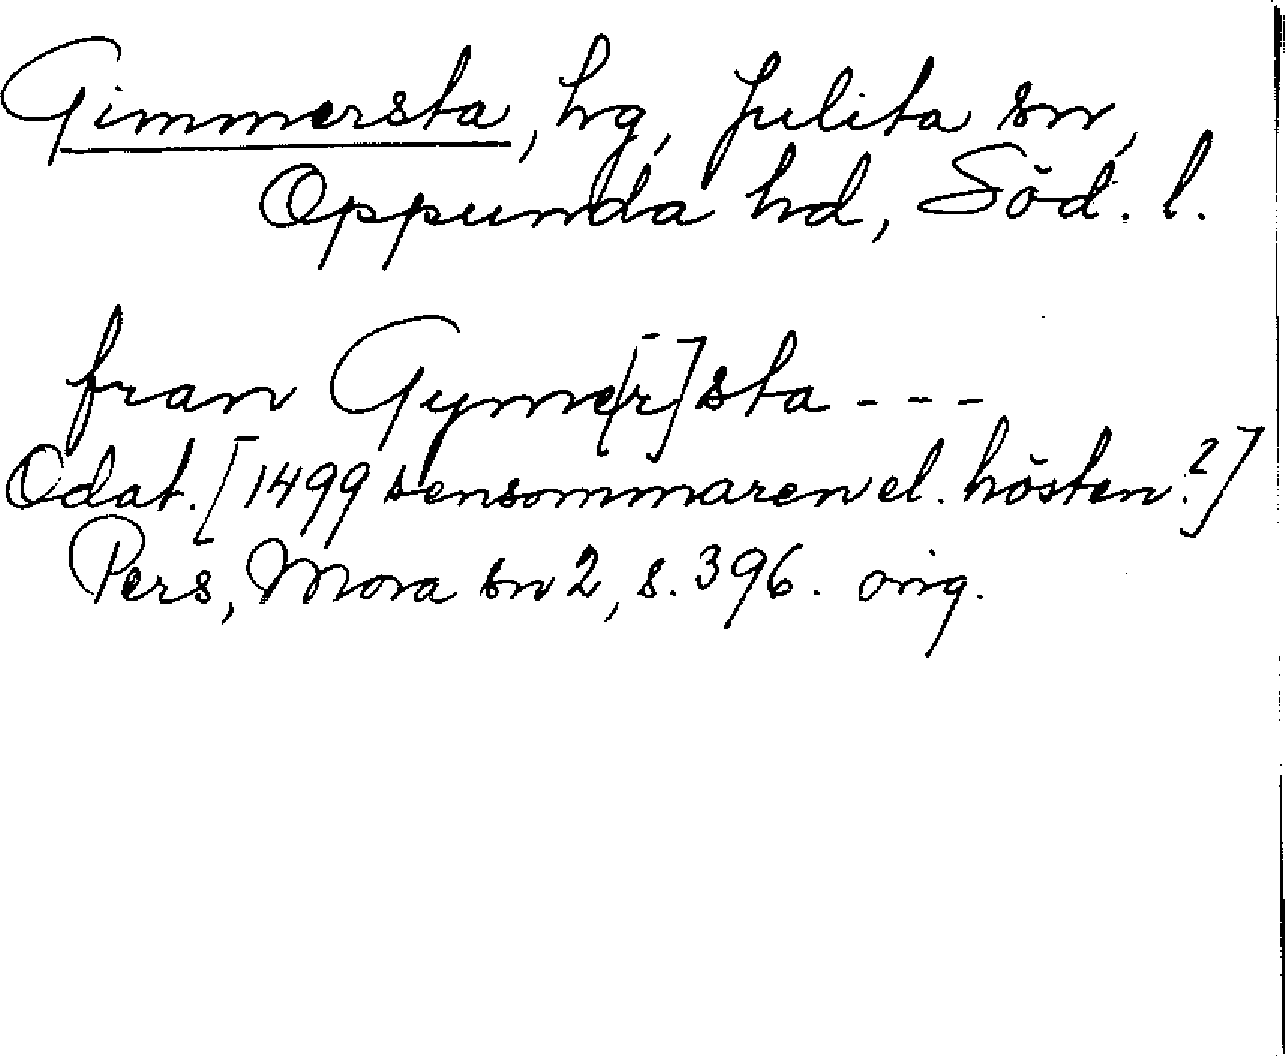 Gimmersta, hg, Julita sn,
Oppunda hd, Söd. l.
fran Gyme[r]sta - - -
Odat. [1499 sensommaren el. hösten?]
Pers, Mora sn 2, s. 396. orig.